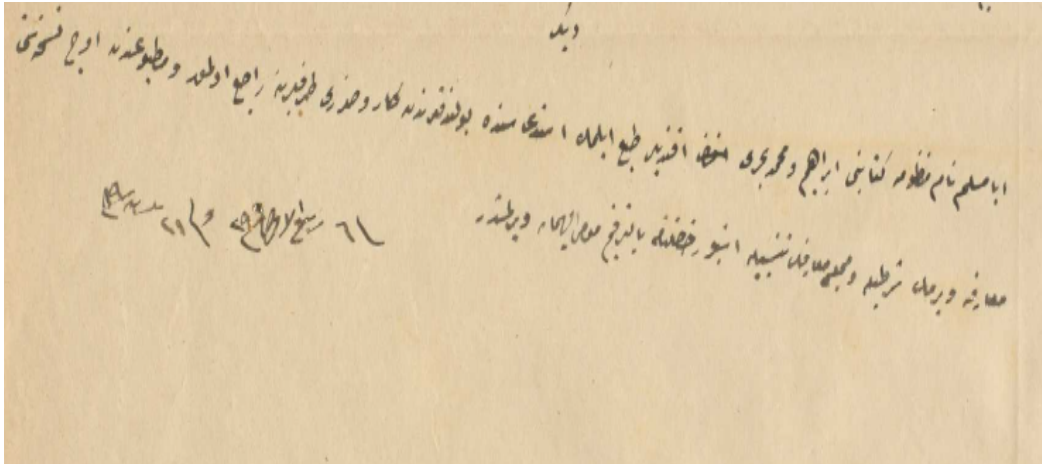 دیگر
ابا مسلم نام منظومه كتابنی ابراهیم و محمد بحری افندیلر طبع ایلمك استدعاسنده بولندقلرندن كار وضرری طرفلرینه راجع اولمق و مطبوعندن اوچ نسخه‌سنی
معارفه ویرمك شرطیله و مجلس معارفك تنسیبیله اشبو رخصتنامه بالترقیم مومی الیهمایه ویرلمشدر